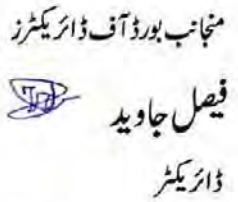 منجانب بورڈ آف ڈائریکٹرز
فیصل جاوید
ڈائریکٹر